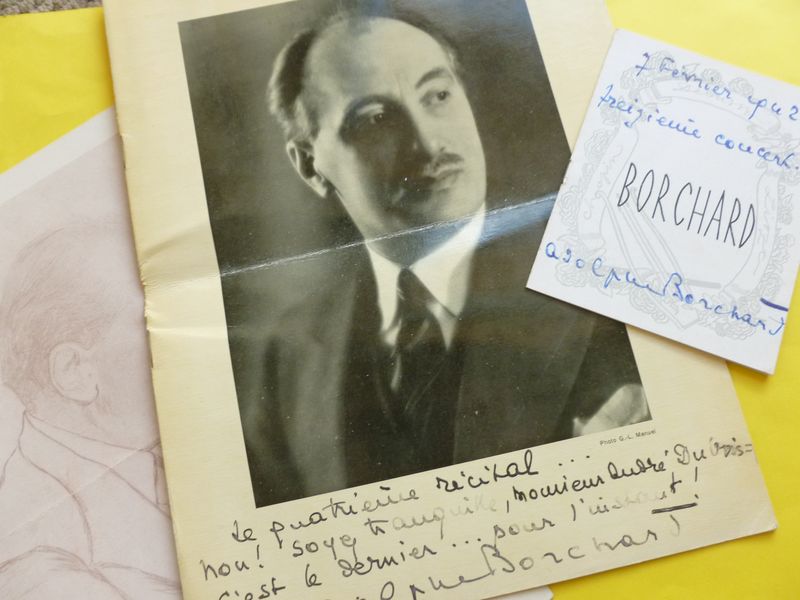 7 Février 1942
treizième concert.
BORCHARD
Adolphe Borchard
Photo G.-L. Manuel
Le quatrième récital ...
non! Soyez tranquille, Monsieur André Du
c'est le dernier ... pour l'instant!
Adolphe Borchard